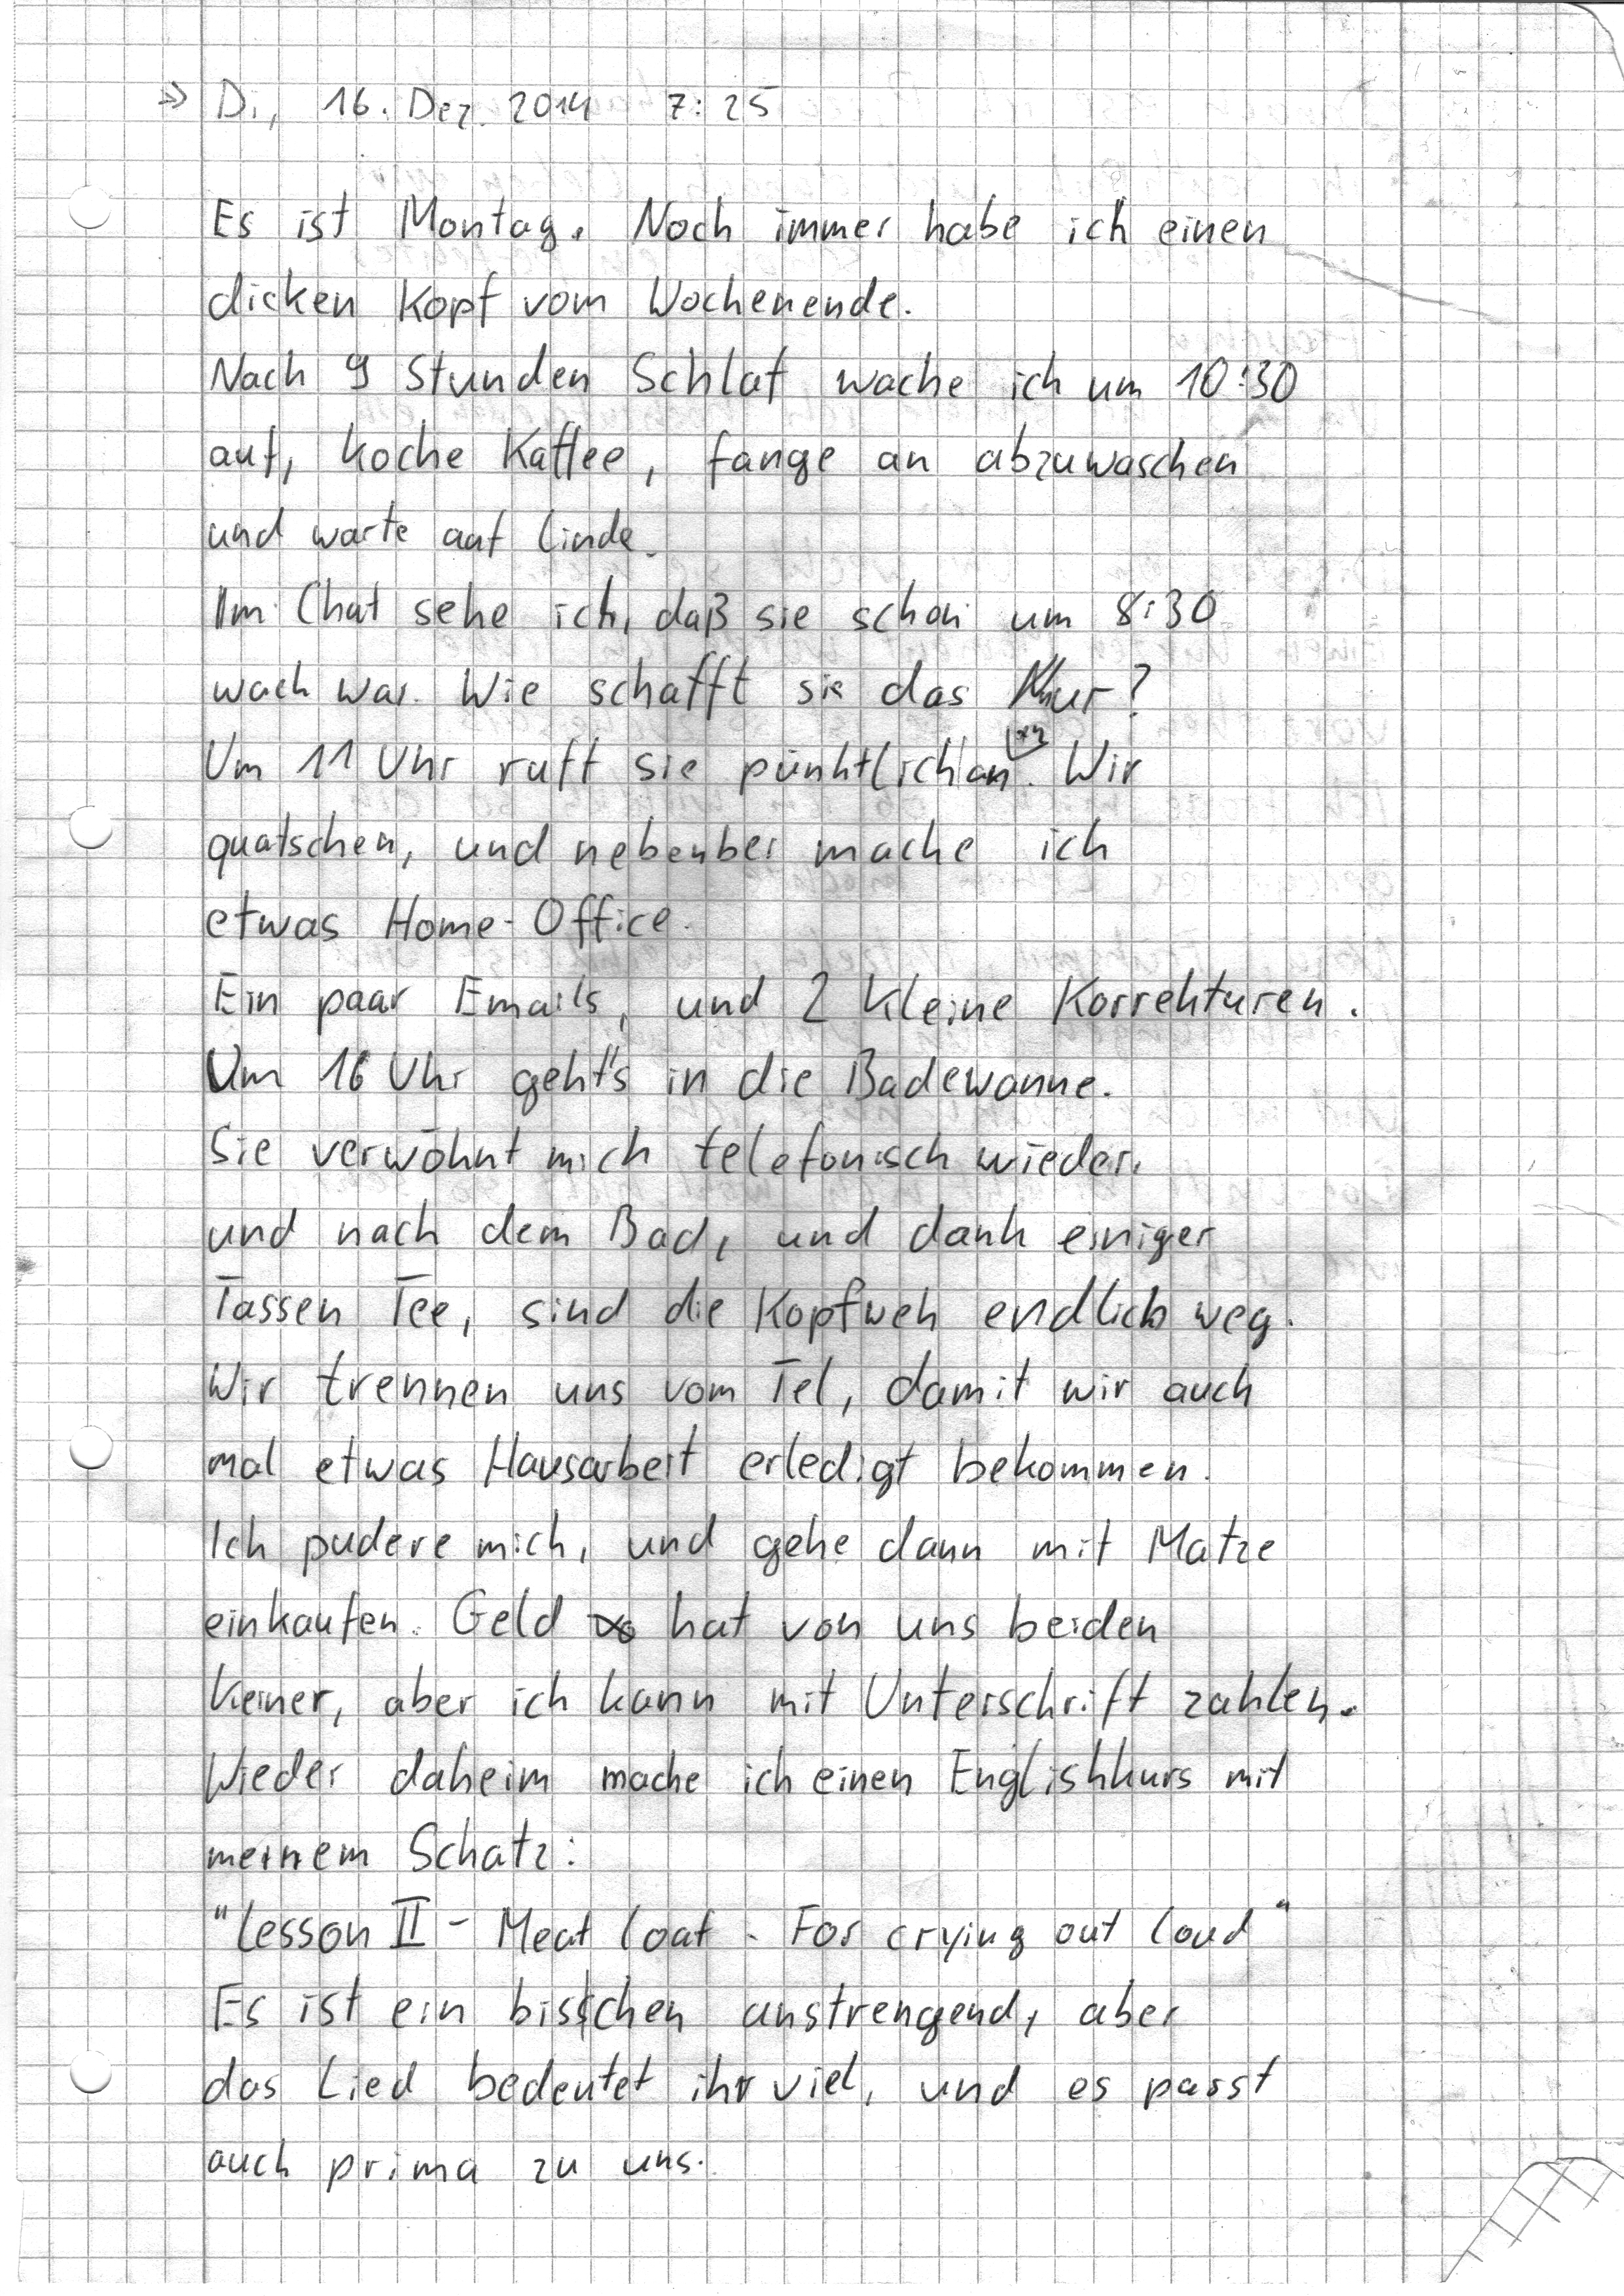 » Di, 16. Dez. 2014 7:25
Es ist Montag. Noch immer habe ich einen
dicken Kopf vom Wochenende.
Nach 9 Stunden Schlaf wache ich um 10:30
auf, koche Kaffee, fange an abzuwaschen
und warte auf Linde.
Im Chat sehe ich, daß sie schon um 8:30
wach war. Wie schafft sie das nur?
Um 11 Uhr ruft sie pünktlich an. Wir
quatschen, und nebenbei mache ich
etwas Home-Office.
Ein paar Emails, und 2 kleine Korrekturen.
Um 16 Uhr geht's in die Badewanne.
Sie verwöhnt mich telefonisch wieder,
und nach dem Bad, und dank einiger
Tassen Tee, sind die Kopfweh endlich weg.
Wir trennen uns vom Tel, damit wir auch
mal etwas Hausarbeit erledigt bekommen.
Ich pudere mich, und gehe dann mit Matze
einkaufen. Geld hat von uns beiden
keiner, aber ich kann mit Unterschrift zahlen.
Wieder daheim mache ich einen Englishkurs mit
meinem Schatz:
"Lesson II - Meat Loaf - For crying out loud"
Es ist ein bisschen anstrengend, aber
das Lied bedeutet ihr viel, und es passt
auch prima zu uns.